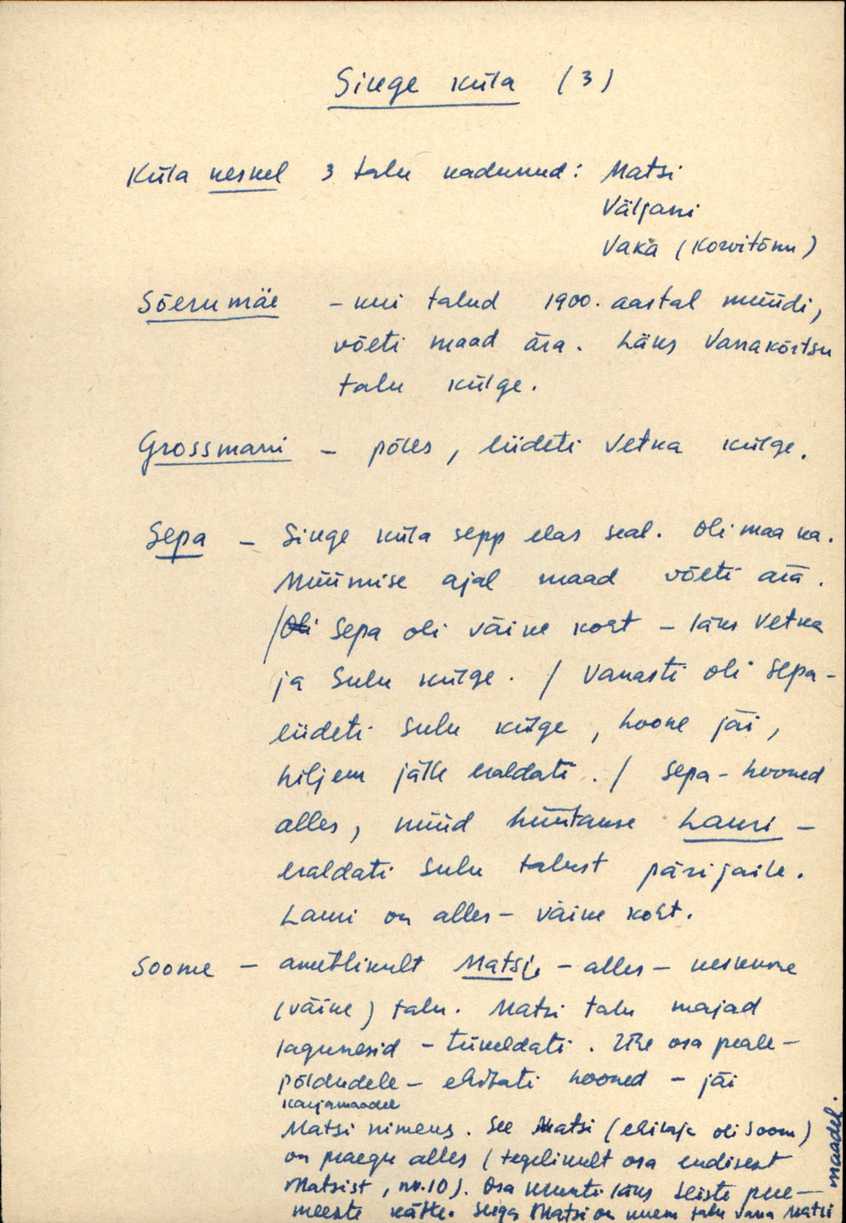 Singe küla (3)
Küla keskel 3 talu kadunud: Matsi
Väljani
Vaka (Korvitõnu)
Sõerumäe - kui talud 1900. aastal müüdi,
võeti maad ära. Läks Vanakõrtsu
talu külge.
Grossmani - põles, liideti Vetka külge.
Sepa - Singe küla sepp elas seal. Oli maa ka.
Müümise ajal maad võeti ära.
/Oli Sepa oli väike koht - läks Vetka
ja Sulu külge. / Vanasti oli Sepa -
liideti Sulu külge, hoone jäi,
hiljem jälle eraldati. / Sepa-hooned
alles, nüüd hüütakse Lauri -
eraldati Sulu talust pärijaile.
Lauri on alles - väike koht.
Soome - ametlikult Matsi, - alles - keskmine
(väike) talu. Matsi talu majad
lagunesid - tükeldati. Ühe osa peale -
põldudele - ehitati hooned - jäi
karjamaadel
Matsi nimeks. See Matsi (ehitaja oli Soom)
on praegu alles (tegelikult osa endisest
Matsist, nr. 10). Osa krunti läks teiste pere-
meeste kätte. Seega Matsi on uuem talu vana Matsi
maadel.